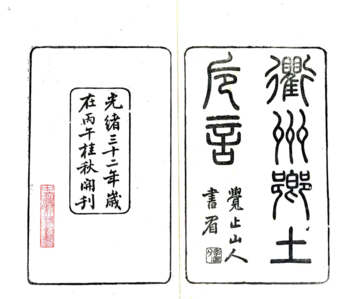 衢州鄉土
卮言
覺止山人
書眉
光緒三十二年歲
在丙午桂秋開刊